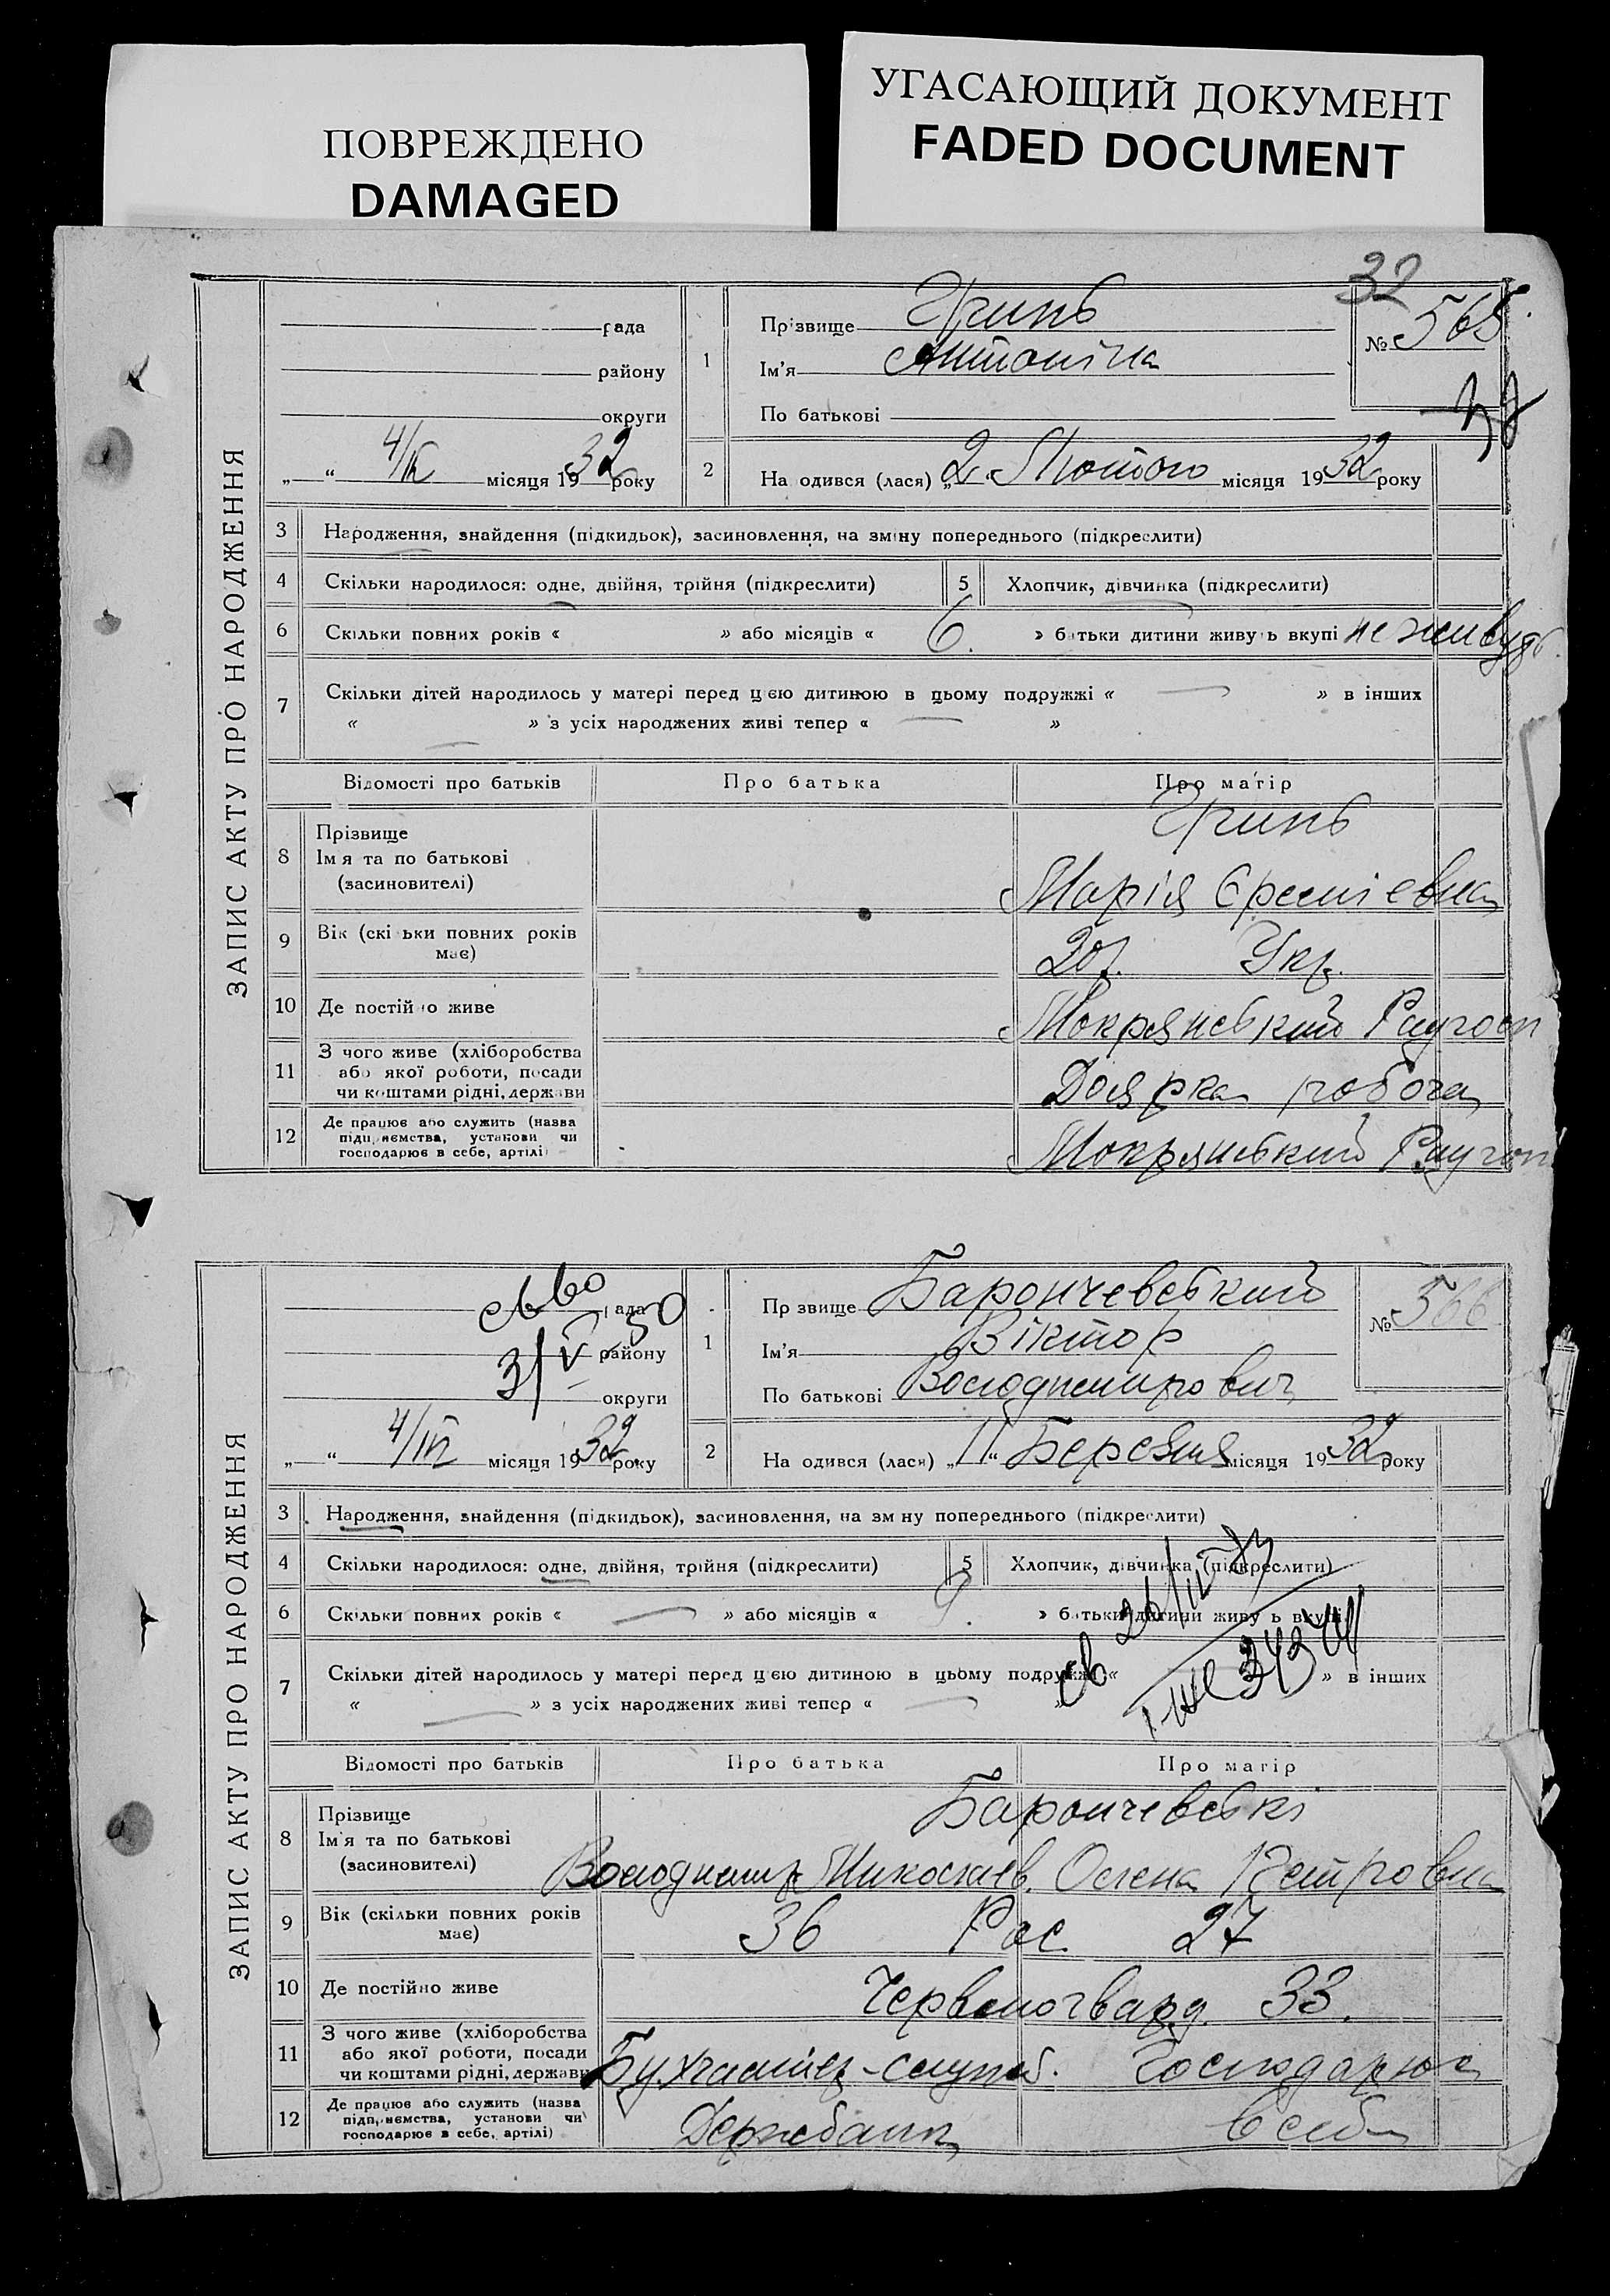 ПОВРЕЖДЕНО
DAMAGED
УГАСАЮЩИЙ ДОКУМЕНТ
FADED DOCUMENT
32
ЗАПИС АКТУ ПРО НАРОДЖЕННЯ
рада
району
округи
„ “ 4/ІІІ місяця 1932 року
1
Прізвище Гринь
Ім'я Антоніна
По батькові
№ 565
2
На одився (лася) „2“ Лютого місяця 1932 року
3 Народження, знайдення (підкидьок), засиновлення, на зміну попереднього (підкреслити)
4 Скільки народилося: одне, двійня, трійня (підкреслити)
5 Хлопчик, дівчинка (підкреслити)
6 Скільки повних років « » або місяців « 6. » батьки дитини живуть вкупі не живуть.
7 Скільки дітей народилось у матері перед цією дитиною в цьому подружжі « — » в інших
« — » з усіх народжених живі тепер « — »
Відомості про батьків Про батька Про матір
8 Прізвище
Ім я та по батькові
(засиновителі)
Гринь
Марія Єремієвна
9 Вік (скі ьки повних років
має)
20р. Укр.
10 Де постійно живе
Мокрянський Радгосп
11 З чого живе (хліборобства
або якої роботи, посади
чи коштами рідні, держави
Доярка робоча
12 Де працює або служить (назва
підприємства, установи чи
господарює в себе, артілі)
Мокрянський Радгосп
ЗАПИС АКТУ ПРО НАРОДЖЕННЯ
рада
району
округи
св-во
3/V 50
„ “ 4/ІІІ місяця 1932 року
1
Пр звище Барончевський
Ім'я Віктор
По батькові Володимирович
№ 566
2
На одився (лася) „11“ Березня місяця 1932 року
3 Народження, знайдення (підкидьок), засиновлення, на зм ну попереднього (підкреслити)
4 Скільки народилося: одне, двійня, трійня (підкреслити)
5 Хлопчик, дівчинка (підкреслити)
6 Скільки повних років « — » або місяців « 9. » батьки дитини живу ь вкупі
7 Скільки дітей народилось у матері перед цією дитиною в цьому подружжі « » в інших
« — » з усіх народжених живі тепер « — »
Відомості про батьків Про батька Про матір
8 Прізвище
Ім'я та по батькові
(засиновителі)
Барончевські
Володимир Миколаєв. Олена Петровна
9 Вік (скільки повних років
має)
36 Рос. 27
10 Де постійно живе
Червоногвард. 33.
11 З чого живе (хліборобства
або якої роботи, посади
чи коштами рідні, держави
Бухгалтер-службов. Господарює
12 Де працює або служить (назва
підприємства, установи чи
господарює в себе, артілі)
Держбанк в себе